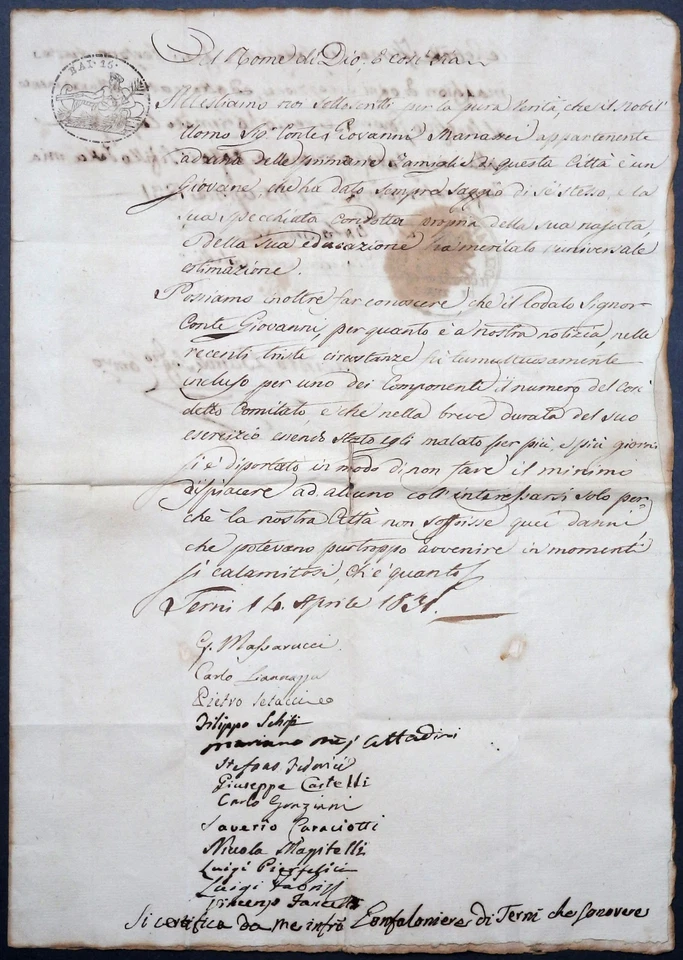 BAI. 15.
Nel Nome di Dio, E così sia
Attestiamo noi sottoscritti per la pura verità, che il nobil'
Uomo Sigr Conte Giovanni Manassei appartenente
ad una delle primarie Famiglie di questa Città è un
Giovine, che ha dato sempre saggio di se stesso, e la
sua specchiata condotta propria della sua nascita,
e della sua educazione ha meritato l'universale
estimazione.
Possiamo inoltre far conoscere, che il lodato Signor
Conte Giovanni, per quanto è a nostra notizia, nelle
recenti triste circostanze fù tumultuosamente
incluso per uno dei Componenti il numero del così
detto Comitato, e che nella breve durata del suo
esercizio essendo stato egli malato per più, e più giorni
si è diportato in modo di non fare il minimo
dispiacere ad alcuno coll'interessarsi solo per-
chè la nostra Città non soffrisse quei danni
che potevano purtroppo avvenire in momenti
sì calamitosi, ch'è quanto
Terni 14 Aprile 1831.
G. Massarucci
Carlo
Pietro Setacci
Filippo Schifi
Mariano Cittadini
Stefano Federici
Giuseppe Castelli
Carlo Graziani
Saverio Caraciotti
Nicola Magitelli
Luigi Pierfelici
Luigi Fabrizi
Vincenzo
Si certifica da me infrō Gonfaloniere di Terni che sono vere